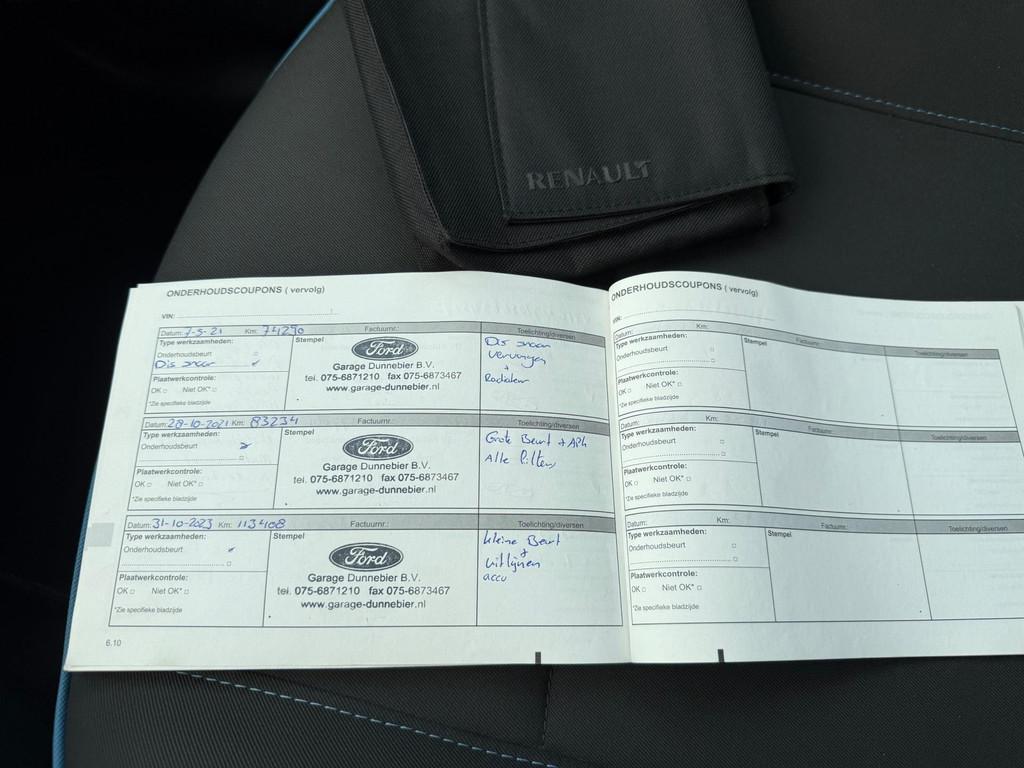 RENAULT
ONDERHOUDSCOUPONS ( vervolg)
VIN:
Datum: 7-5-21 Km: 74290 Factuurnr.: Toelichting/diversen
Type werkzaamheden:
Onderhoudsbeurt
Dis snaar
Plaatwerkcontrole:
OK Niet OK*
*Zie specifieke bladzijde
Stempel
Ford
Garage Dunnebier B.V.
tel. 075-6871210 fax 075-6873467
www.garage-dunnebier.nl
Dis snaar
vervangen
+
Radiateur
Datum: 28-10-2021 Km: 83234 Factuurnr.: Toelichting/diversen
Type werkzaamheden:
Onderhoudsbeurt
Plaatwerkcontrole:
OK Niet OK*
*Zie specifieke bladzijde
Stempel
Ford
Garage Dunnebier B.V.
tel. 075-6871210 fax 075-6873467
www.garage-dunnebier.nl
Grote Beurt + APK
Alle filters
Datum: 31-10-2023 Km: 113408 Factuurnr.: Toelichting/diversen
Type werkzaamheden:
Onderhoudsbeurt
Plaatwerkcontrole:
OK Niet OK*
*Zie specifieke bladzijde
Stempel
Ford
Garage Dunnebier B.V.
tel. 075-6871210 fax 075-6873467
www.garage-dunnebier.nl
kleine Beurt
+
uitlijnen
accu
6.10
ONDERHOUDSCOUPONS ( vervolg)
VIN:
Datum: Km: Factuurnr.: Toelichting/diversen
Type werkzaamheden:
Onderhoudsbeurt
Plaatwerkcontrole:
OK Niet OK*
*Zie specifieke bladzijde
Stempel
Datum: Km: Factuurnr.: Toelichting/diversen
Type werkzaamheden:
Onderhoudsbeurt
Plaatwerkcontrole:
OK Niet OK*
*Zie specifieke bladzijde
Stempel
Datum: Km: Factuurnr.: Toelichting/diversen
Type werkzaamheden:
Onderhoudsbeurt
Plaatwerkcontrole:
OK Niet OK*
*Zie specifieke bladzijde
Stempel